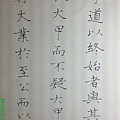 道以終始者與其
大甲而不疑大甲
大業於至公而以